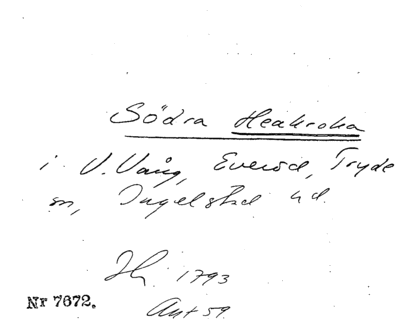 Södra Heakroka
i V. Vång, Everöd, Tryde
sn, Ingelstad hd.
1793
Nr 7672.
Akt 59.